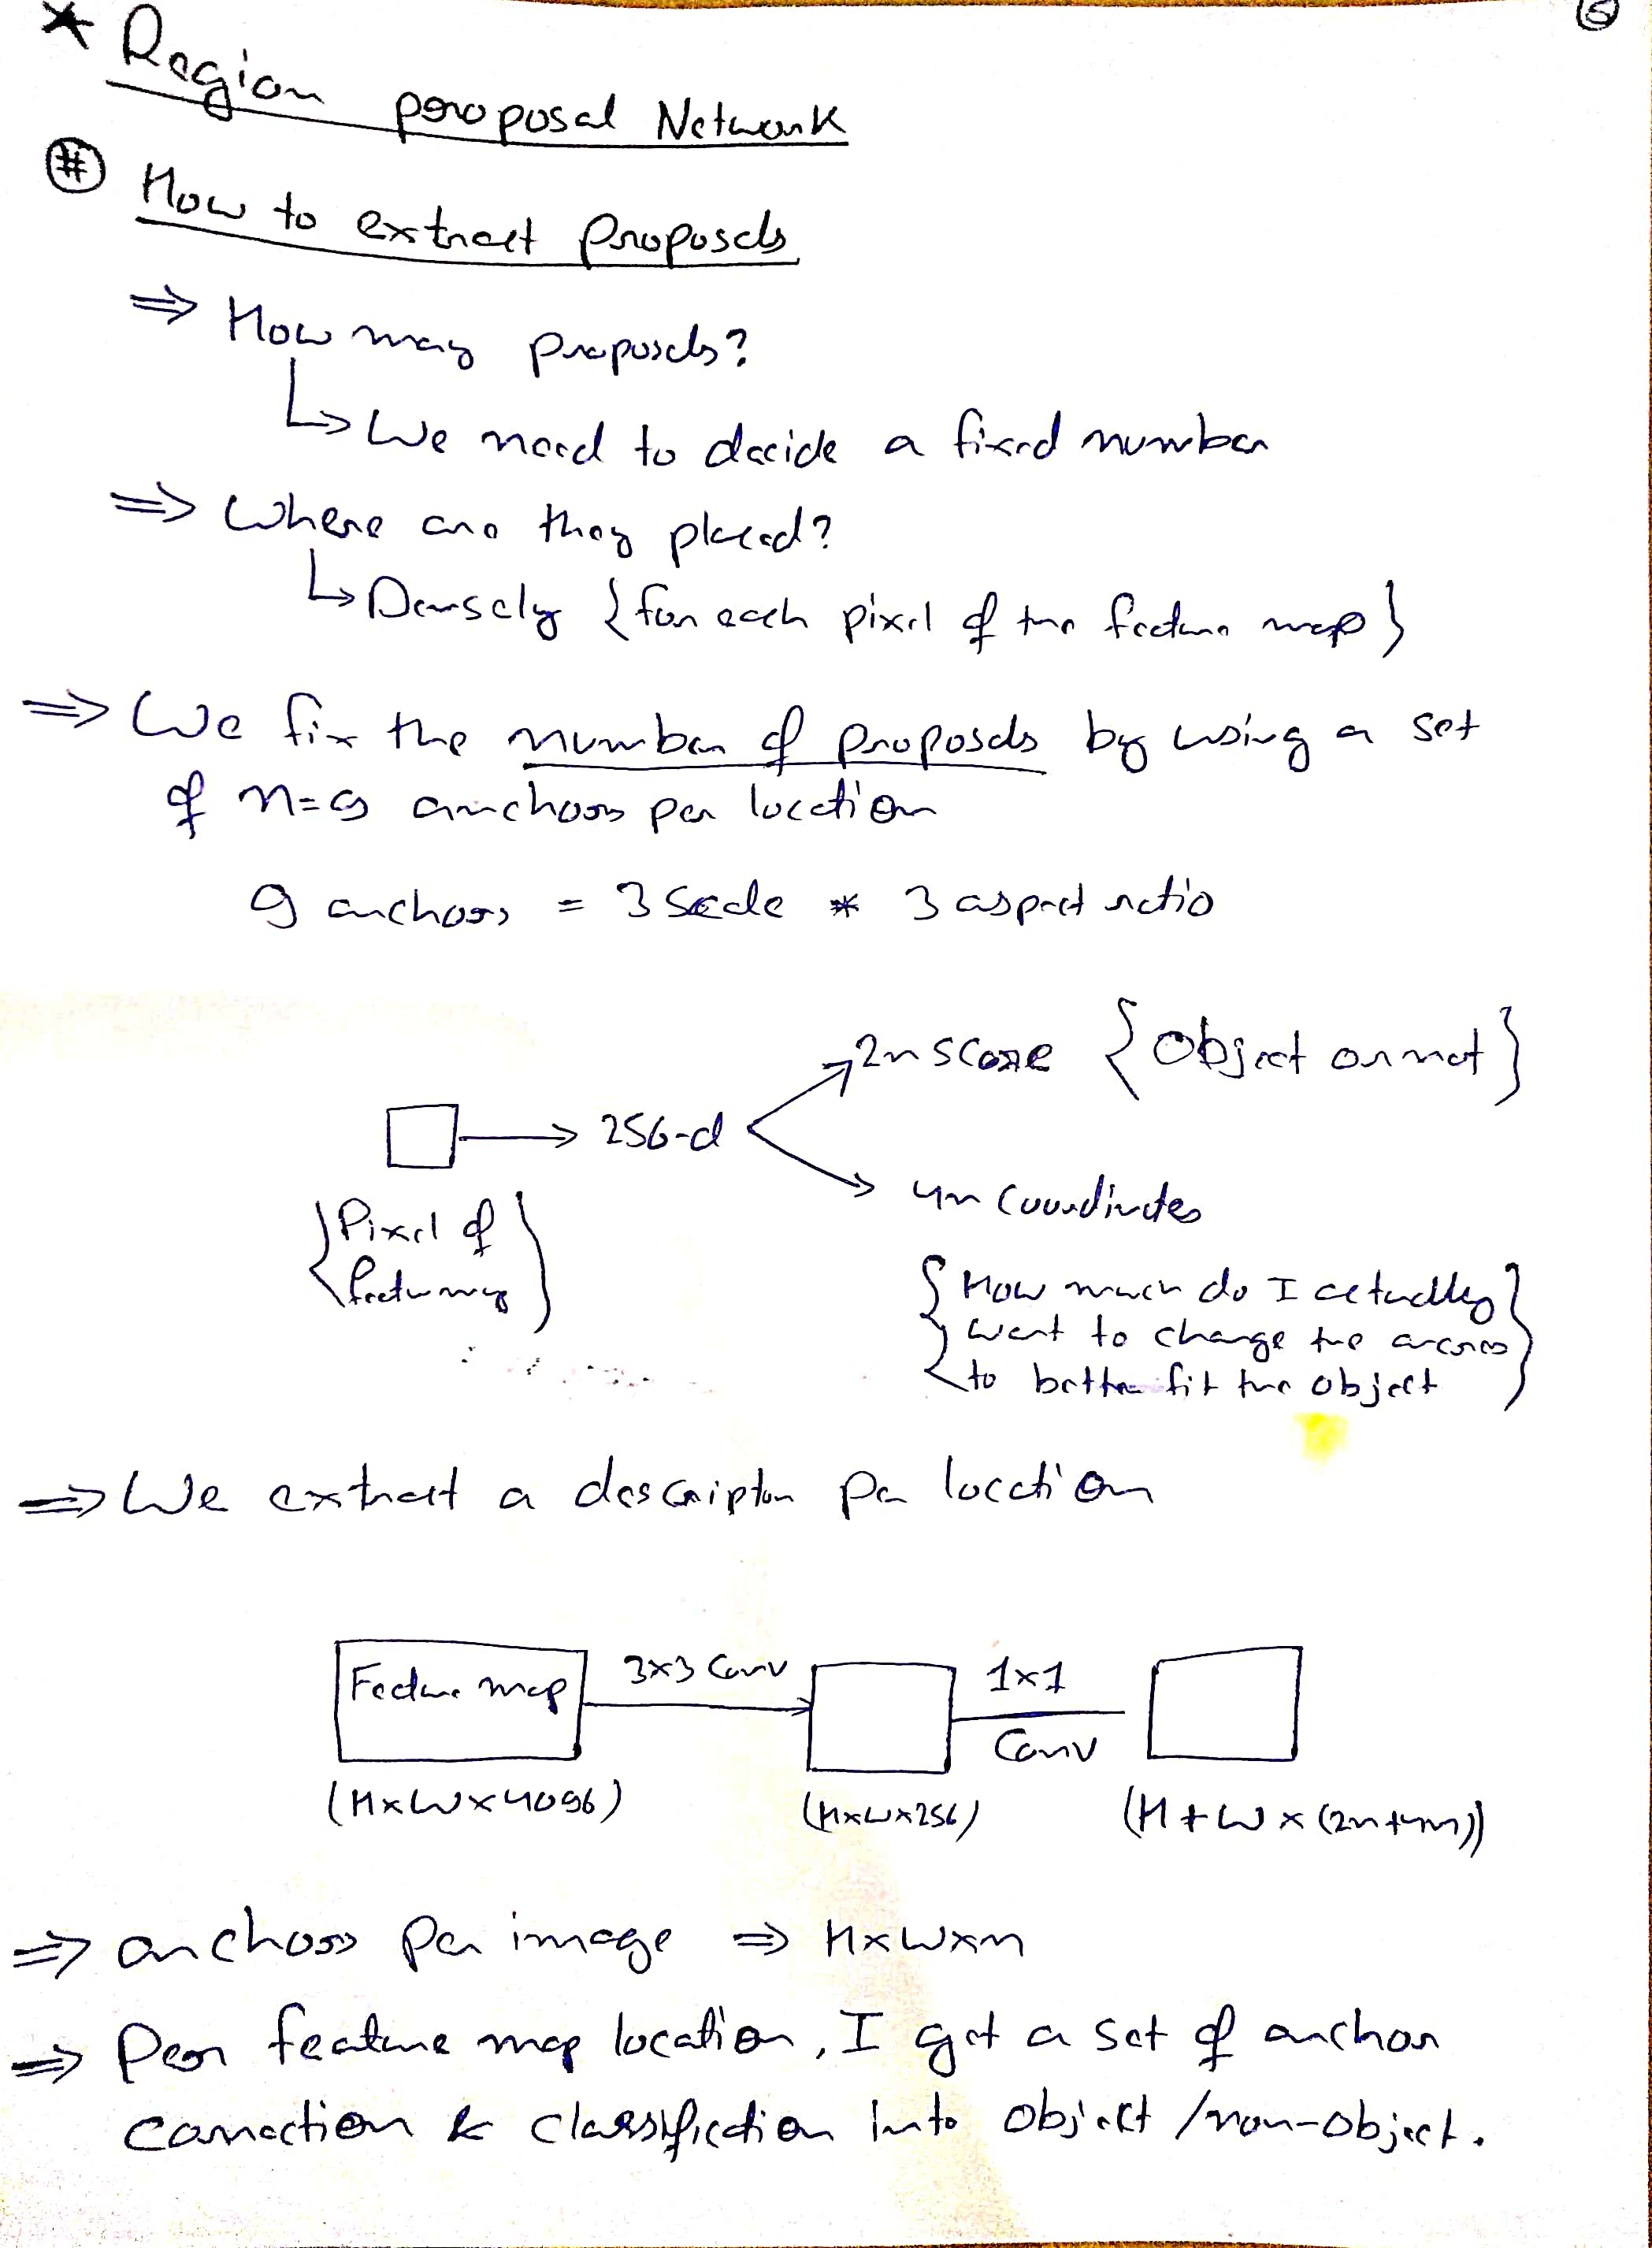 5
* Region proposal Network
# How to extract proposals
⇒ How may proposals?
↳ We need to decide a fixed number
⇒ Where are they placed?
↳ Densely {for each pixel of the feature map}
⇒ We fix the number of proposals by using a set
of n=9 anchors per location
9 anchors = 3 Scale * 3 aspect ratio
2n score {Object or not}
→ 256-d
4n coordinates
{Pixel of
feature map}
{How much do I actually
want to change the
to better fit the object}
⇒ We extract a descriptor per location
Feature map 3x3 Conv 1x1
Conv
(H×W×4096) (H×W×256) (H+W×(2n+4n))
⇒ anchors per image ⇒ H×W×n
⇒ Per feature map location, I get a set of anchor
correction & classification into object/non-object.